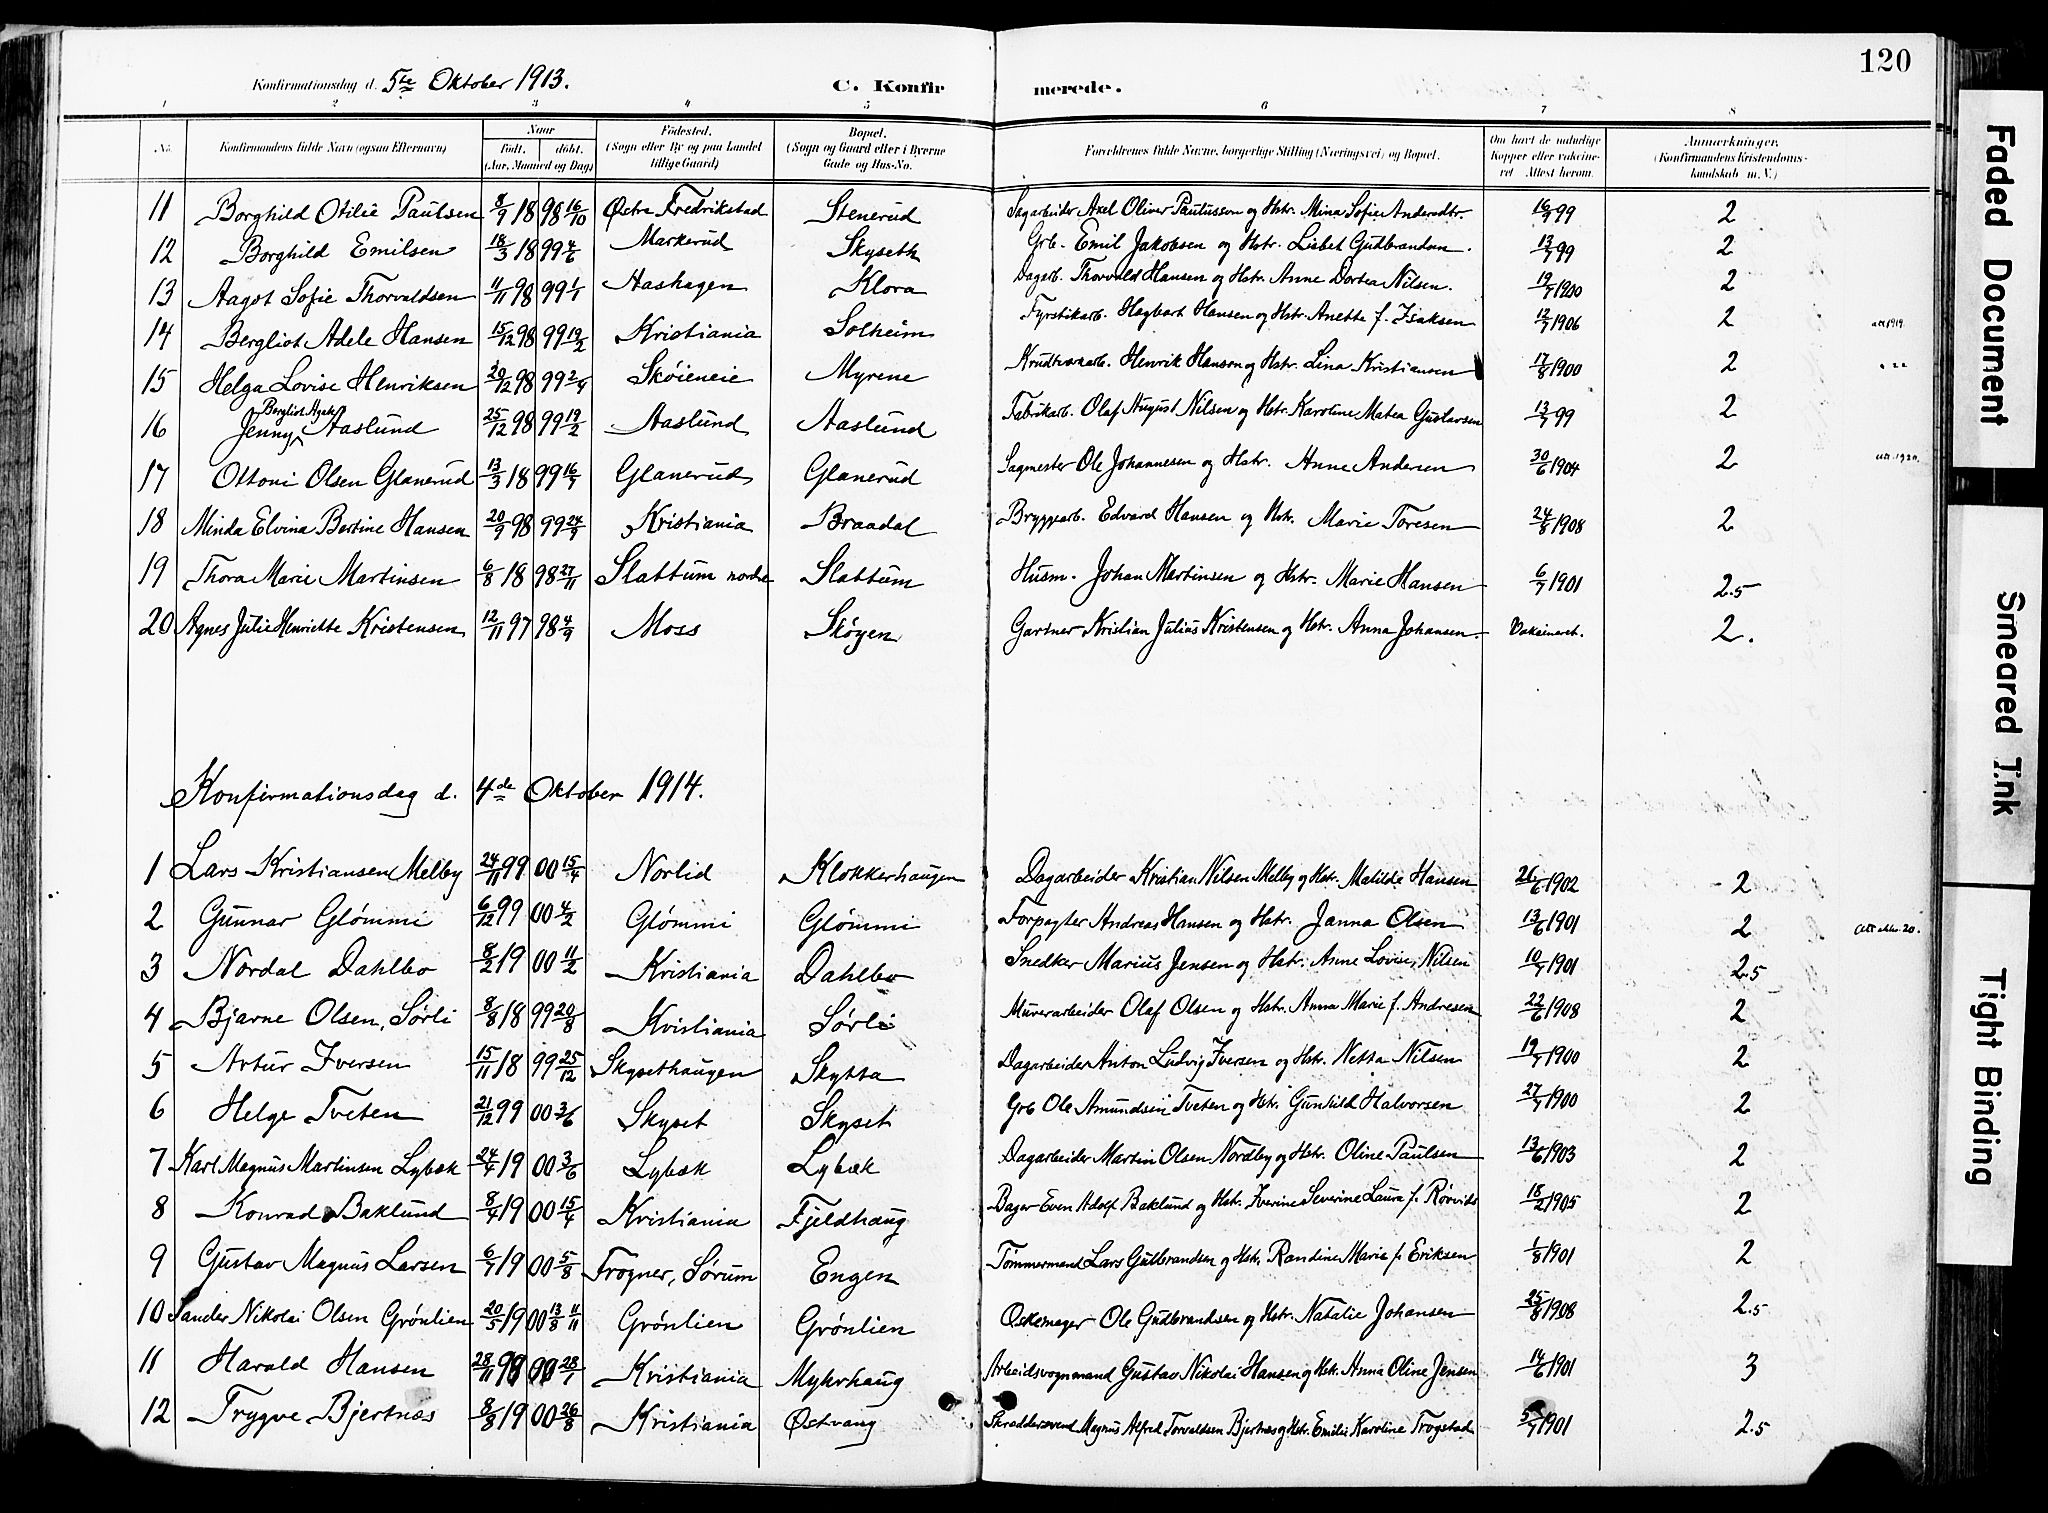 120
Konfirmationsdag d. 5te Oktober 1913. C. Konfirmerede.
1 2 3 4 5 6 7 8
No. Konfirmandens fulde Navn (ogsaa Efternavn) Naar født. døbt. (Aar, Maaned og Dag) Fødested. (Sogn eller By og paa Landet tillige Gaard) Bopæl. (Sogn og Gaard eller i Byerne Gade og Hus-No. Forældrenes fulde Navne, borgerlige Stilling (Næringsvei) og Bopæl. Om havt de naturlige Kopper eller vakcineret. Attest herom. Anmærkninger. (Konfirmandens Kristendomskundskab m. V.)
11 Borghild Otilie Paulsen 8/9 1898 16/10 Østre Fredrikstad Stenerud Sagarbeider Axel Oliver Paulusson og Hstr. Mina Sofie Andersdtr. 16/9 99 2
12 Borghild Emilsen 18/3 1899 4/6 Markerud Skyseth Grb. Emil Jakobsen og Hstr. Lisbet Gudbrandsen. 13/7 99 2
13 Aagot Sofie Thorvaldsen 11/11 98 99 1/1 Aashagen Klora Dagarb. Thorvald Hansen og Hstr. Anne Dortea Nilsen. 19/7 1900 2
14 Bergliot Adele Hansen 15/12 98 99 19/2 Kristiania Solheim Fyrstikarb. Hagbart Hansen og Hstr. Anette f. Isaksen 12/7 1906 2 att 1919.
15 Helga Lovise Henriksen 20/12 98 99 2/4 Skøieneie Myrene Krudtværkarb. Henrik Hansen og Hstr. Lina Kristiansen 17/8 1900 2
16 Jenny Bergliot Agate Aaslund 25/12 98 99 19/2 Aaslund Aaslund Fabrikarb. Olaf August Nilsen og Hstr. Karoline Matea Gustavsen 13/7 99 2
17 Ottoni Olsen Glanerud 13/3 1899 16/7 Glanerud Glanerud Sagmester Ole Johannesen og Hstr. Anne Andersen 30/6 1904 2 Att. 1920.
18 Minda Elvina Bertine Hansen 20/9 98 99 24/9 Kristiania Braadal Bryggearb. Edvard Hansen og Hstr. Marie Toresen 24/8 1908 2
19 Thora Marie Martinsen 6/8 1898 27/11 Slattum nordre Slattum Husm. Johan Martinsen og Hstr. Marie Hansen 6/7 1901 2.5
20 Agnes Julie Henriette Kristensen 12/11 97 98 4/9 Moss Skøyen Gartner Kristian Julius Kristensen og Hstr. Anna Johansen. Vakcineret. 2.
Konfirmationsdag d. 4de Oktober 1914.
1 Lars Kristiansen Melby 24/11 99 00 15/4 Norlid Klokkerhaugen Dagarbeider Kristian Nilsen Melby og Hstr. Matilde Hansen 26/6 1902 2
2 Gunnar Glømmi 6/12 99 00 4/2 Glømmi Glømmi Forpagter Andreas Hansen og Hstr. Janna Olsen 13/6 1901 2
3 Nordal Dahlbo 8/2 1900 11/2 Kristiania Dahlbo Snedker Marius Jensen og Hstr. Anne Lovise Nilsen 10/7 1901 2.5
4 Bjarne Olsen, Sørli 8/8 1899 20/8 Kristiania Sørli Murerarbeider Olaf Olsen og Hstr. Anna Marie f. Andresen 22/6 1908 2
5 Artur Iversen 15/11 1899 25/12 Skysethaugen Skytta Dagarbeider Anton Ludvig Iversen og Hstr. Netta Nilsen 19/7 1900 2
6 Helge Tveten 21/12 99 00 3/6 Skyset Skyset Grb Ole Amundsen Tveten og Hstr. Gunhild Halvorsen 27/7 1900 2
7 Karl Magnus Martinsen Lybæk 24/4 1900 3/6 Lybæk Lybæk Dagarbeider Martin Olsen Nordby og Hstr. Oline Paulsen 13/6 1903 2
8 Konrad Baklund 8/4 1900 15/4 Kristiania Fjeldhaug Bager Even Adolf Baklund og Hstr. Iverine Severine Laura f. Rørvik 18/2 1905 2
9 Gustav Magnus Larsen 6/7 1900 5/8 Frogner, Sørum Engen Tømmermand Lars Gulbrandsen og Hstr. Randine Marie f. Eriksen 1/8 1901 2
10 Sander Nikolai Olsen Grønlien 20/5 1900 13/8 11/11 Grønlien Grønlien Øskemager Ole Gudbrandsen og Hstr. Natalie Johansen 25/8 1908 2.5
11 Harald Hansen 28/11 99 00 28/1 Kristiania Myhrhaug Arbeidsvognmand Gustav Nikolai Hansen og Hstr. Anna Oline Jensen 14/6 1901 3
12 Trygve Bjertnæs 8/8 1900 26/8 Kristiania Østvang Skræddersvend Magnus Alfred Torvaldsen Bjertnæs og Hstr. Emilie Karoline Trogstad 5/7 1901 2.5
Faded Document
Smeared Ink
Tight Binding